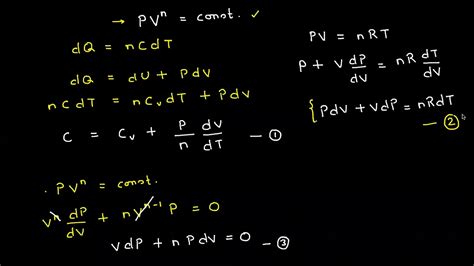 → PVⁿ = const. ✓
dQ = nCdT
dQ = dU + PdV
nCdT = nCᵥdT + PdV
C = Cᵥ + P/n dV/dT — ①
PV = nRT
P + V dP/dV = nR dT/dV
{ PdV + VdP = nRdT
— ②
. PVⁿ = const.
Vⁿ dP/dV + nVⁿ⁻¹ P = 0
VdP + nPdV = 0 — ③